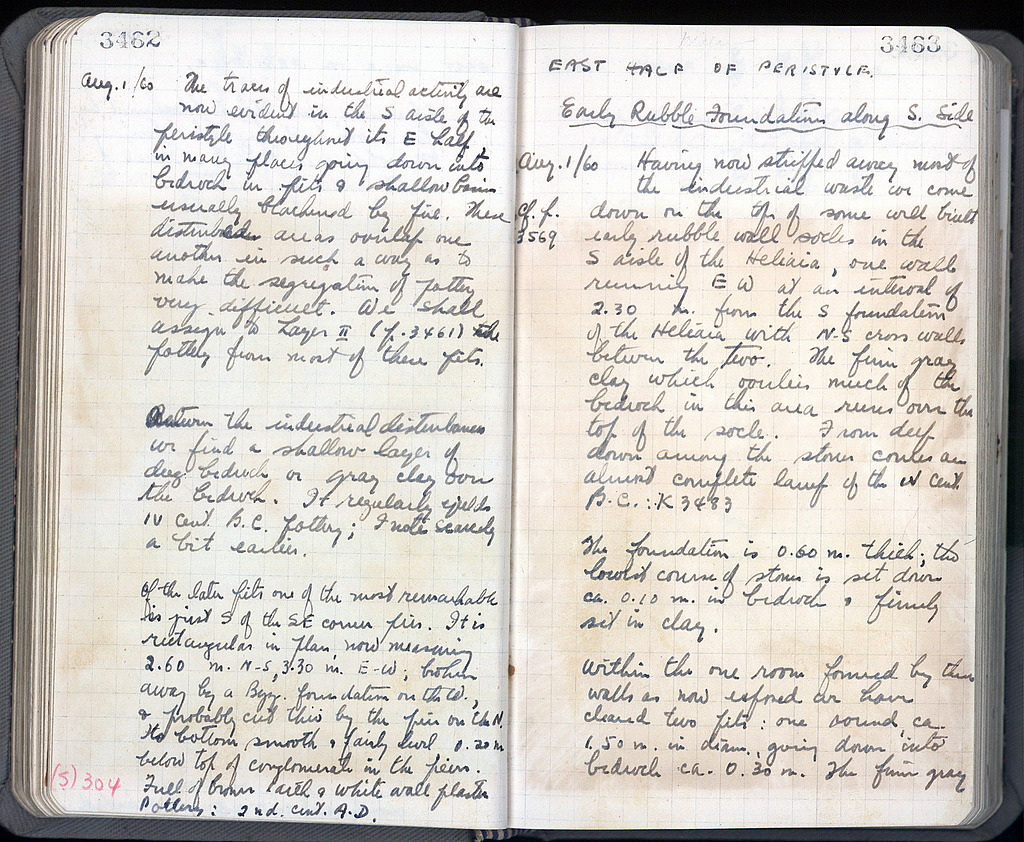 3462
Aug. 1/60 The traces of industrial activity are
now evident in the S aisle of the
peristyle throughout its E half,
in many places going down into
bedrock in pits & shallow basins
usually blackened by fire. These
disturbed areas overlap one
another in such a way as to
make the segregation of pottery
very difficult. We shall
assign to Layer II (p. 3461) the
pottery from most of these pits.
Between the industrial disturbances
we find a shallow layer of
dug bedrock or gray clay over
the bedrock. It regularly yields
IV cent. B.C. pottery; I note scarcely
a bit earlier.
Of the later pits one of the most remarkable
is just S of the SE corner pier. It is
rectangular in plan, now measuring
2.60 m. N-S, 3.30 m. E-W; broken
away by a Byz. foundation on the W.,
& probably cut thio by the pier on the N.
Its bottom smooth & fairly level 0.20 m
below top of conglomerate in the piers.
Full of brown earth & white wall plaster
Pottery: 2nd. cent. A.D.
(S) 304
3463
EAST HALF OF PERISTYLE.
Early Rubble Foundation along S. Side
Aug. 1/60 Having now stripped away most of
the industrial waste we come
cf. p. down on the top of some well built
3569 early rubble wall socles in the
S aisle of the Heliaia, one wall
running E W at an interval of
2.30 m. from the S foundation
of the Heliaia with N-S cross walls
between the two. The firm gray
clay which overlies much of the
bedrock in this area runs over the
top of the socle. From deep
down among the stones comes an
almost complete lamp of the IV cent.
B.C.: K 3483
The foundation is 0.60 m. thick; the
lowest course of stones is set down
ca. 0.10 m. in bedrock & firmly
set in clay.
Within the one room formed by these
walls as now exposed we have
cleared two pits: one round, ca.
1.50 m. in diam. going down into
bedrock ca. 0.30 m. The firm gray